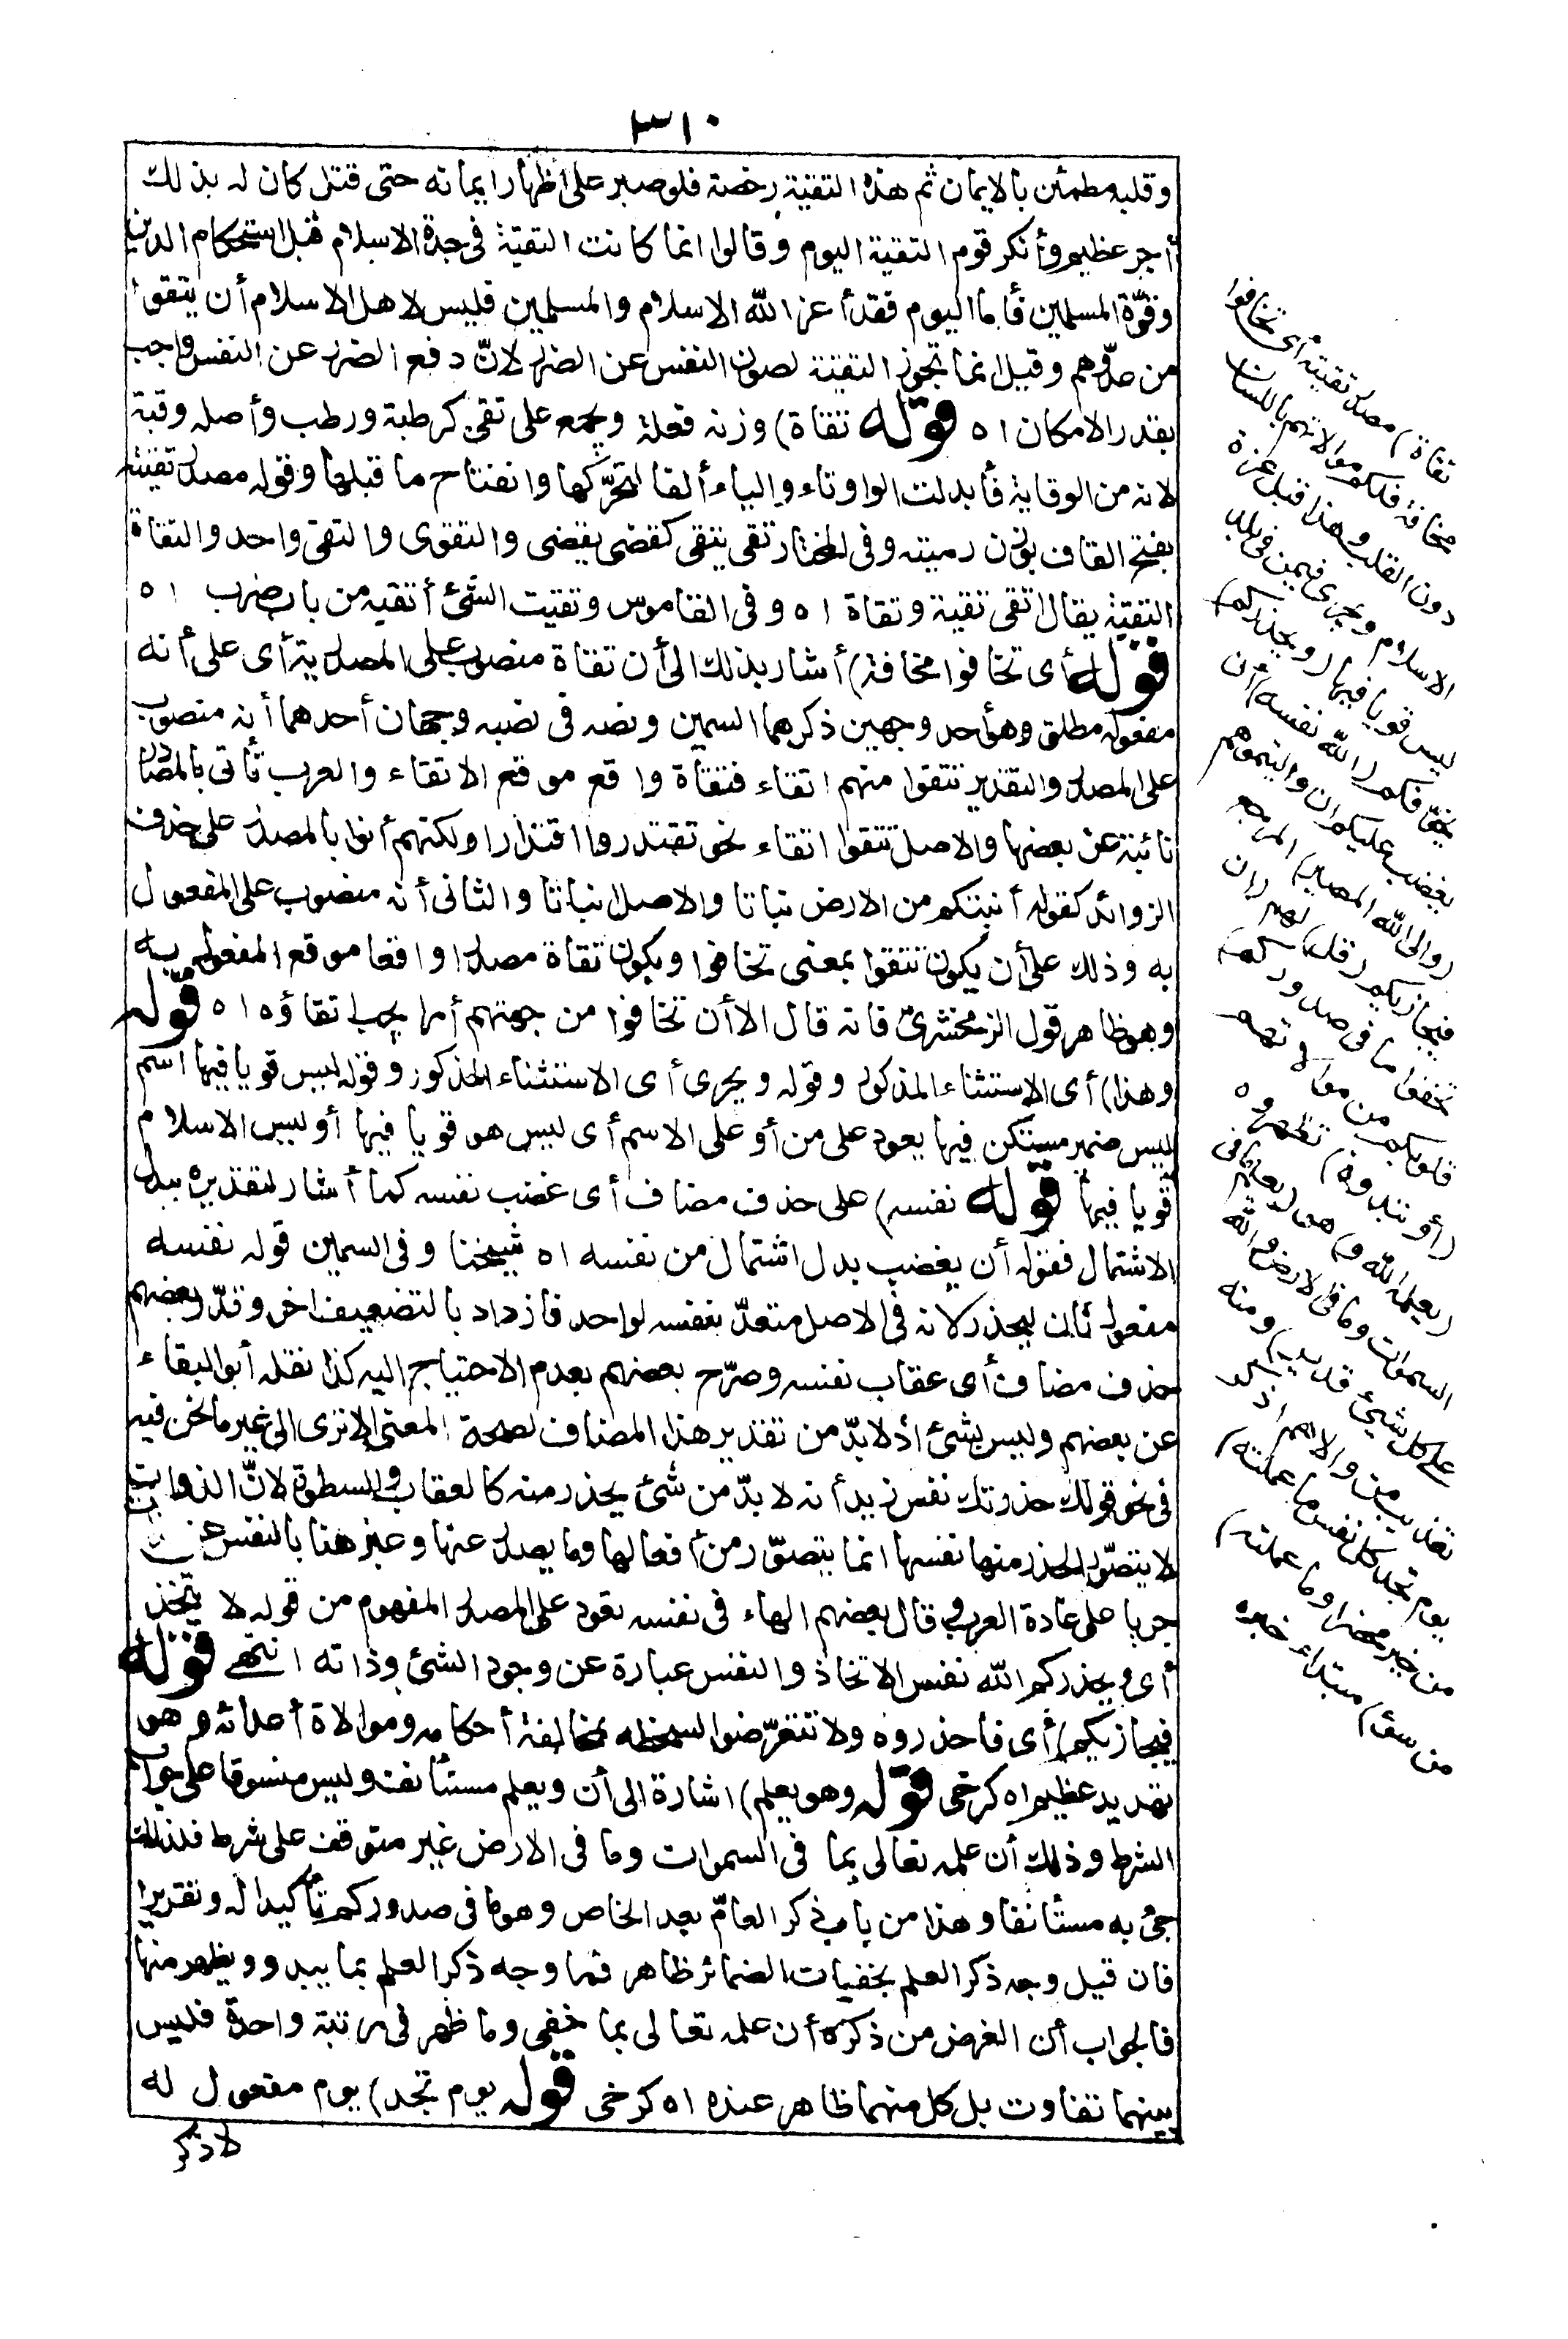 ٣١٠
وقلبه مطمئن بالايمان ثم هذه التقية رخصة فلو صبر على اظهار ايمانه حتى قتل كان له بذلك
أجر عظيم وأنكر قوم التقية اليوم وقالوا انما كانت التقية فى جدة الاسلام قبل استحكام الدين
وقوّة المسلمين فأما اليوم فقد أعز الله الاسلام والمسلمين فليس لاهل الاسلام أن يتقوا
من عدوّهم وقيل انما تجوز التقية لصون النفس عن الضرر لانّ دفع الضرر عن النفس واجب
بقدر الامكان اه قوله تقاة) وزنه فعلة ويجمع على تقى كرطبة ورطب وأصله وقية
لانه من الوقاية فأبدلت الواو تاء والياء ألفا لتحرّكها وانفتاح ما قبلها وقوله مصدر تقيته
بفتح القاف بوزن رميته وفى المختار تقى يتقى كقضى يقضى والتقوى والتقى واحد والتقاة
التقية يقال اتقى تقية وتقاة اه وفى القاموس وتقيت الشئ أتقيه من باب ضرب اه
قوله أى تخافوا مخافة) أشار بذلك الى أن تقاة منصوب على المصدرية أى على أنه
مفعول مطلق وهو أحد وجهين ذكرهما السمين ونصه فى نصبه وجهان أحدهما أنه منصوب
على المصدر والتقدير تتقوا منهم اتقاء فتقاة واقع موقع الاتقاء والعرب تأتى بالمصادر
نائبة عن بعضها والاصل تتقوا اتقاء نحو تقتدروا اقتدارا ولكنهم أتوا بالمصدر على حذف
الزوائد كقوله أنبتكم من الارض نباتا والاصل انباتا والثانى أنه منصوب على المفعول
به وذلك على أن يكون تتقوا بمعنى تخافوا ويكون تقاة مصدرا واقعا موقع المفعول به
وهو ظاهر قول الزمخشرى فانه قال الا أن تخافوا من جهتهم أمرا يجب اتقاؤه اه قوله
وهذا) أى الاستثناء المذكور وقوله ويجرى أى الاستثناء المذكور وقوله ليس قويا فيها اسم
ليس ضمير مستكن فيها يعود على من أو على الاسم أى ليس هو قويا فيها أو ليس الاسلام
قويا فيها قوله نفسه) على حذف مضاف أى غضب نفسه كما أشار لتقديره ببدل
الاشتمال فقوله أن يغضب بدل اشتمال من نفسه اه شيخنا وفى السمين قوله نفسه
مفعول ثان ليحذر لانه فى الاصل متعدّ بنفسه لواحد فازداد بالتضعيف اخر وقدّر بعضهم
حذف مضاف أى عقاب نفسه وصرّح بعضهم بعدم الاحتياج اليه كذا نقله أبو البقاء
عن بعضهم وليس بشئ اذ لا بدّ من تقدير هذا المضاف لصحة المعنى الا ترى الى غير ما نحن فيه
فى نحو قولك حذرتك نفس زيد أنه لا بدّ من شئ يحذر منه كالعقاب والسطوة لانّ الذوات
لا يتصوّر الحذر منها نفسها انما يتصوّر من أفعالها وما يصدر عنها وعبر هنا بالنفس عن الذات
جريا على عادة العرب وقال بعضهم الهاء فى نفسه تعود على المصدر المفهوم من قوله لا يتخذ
أى ويحذركم الله نفس الاتخاذ والنفس عبارة عن وجود الشئ وذاته انتهى قوله
فيجازيكم) أى فاحذروه ولا تتعرّضوا لسخطه بمخالفة أحكامه وموالاة أعدائه وهو
تهديد عظيم اه كرخى قوله وهو يعلم) اشارة الى أن ويعلم مستأنف وليس منسوقا على جواب
الشرط وذلك أن علمه تعالى بما فى السموات وما فى الارض غير متوقف على شرط فلذلك
جئ به مستأنفا وهذا من باب ذكر العامّ بعد الخاص وهو ما فى صدوركم تأكيدا له وتقريرا
فان قيل وجه ذكر العلم بخفيات الضمائر ظاهر فما وجه ذكر العلم بما يبدو ويظهر منها
فالجواب أن الغرض من ذكره أن علمه تعالى بما خفى وما ظهر فى مرتبة واحدة فليس
بينهما تفاوت بل كل منهما ظاهر عنده اه كرخى قوله يوم تجد) يوم مفعول له
لاذكر
تقاة) مصدر تقيته أى تخافوا
مخافة فلكم موالاتهم باللسان
دون القلب وهذا قبل عزة
الاسلام ويجرى فيمن فى بلد
ليس قويا فيها (ويحذركم)
يخوّفكم (الله نفسه) أن
يغضب عليكم ان واليتموهم
(والى الله المصير) المرجع
فيجازيكم (قل) لهم (ان
تخفوا ما فى صدوركم)
قلوبكم من موالاتهم
(أو تبدوه) تظهروه
(يعلمه الله و) هو (يعلم ما فى
السموات وما فى الارض والله
على كل شئ قدير) ومنه
تعذيب من والاهم اذكر
يوم تجد كل نفس ما عملت)
من خير محضرا وما عملت)
من سوء) مبتدا خبره